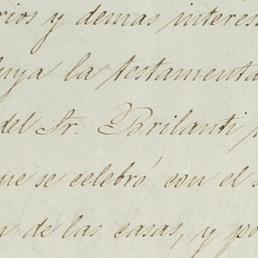 rios y demas interes
luya la testamenta
del Sr. Brilanti
que se celebró con el
n de las casas, y po